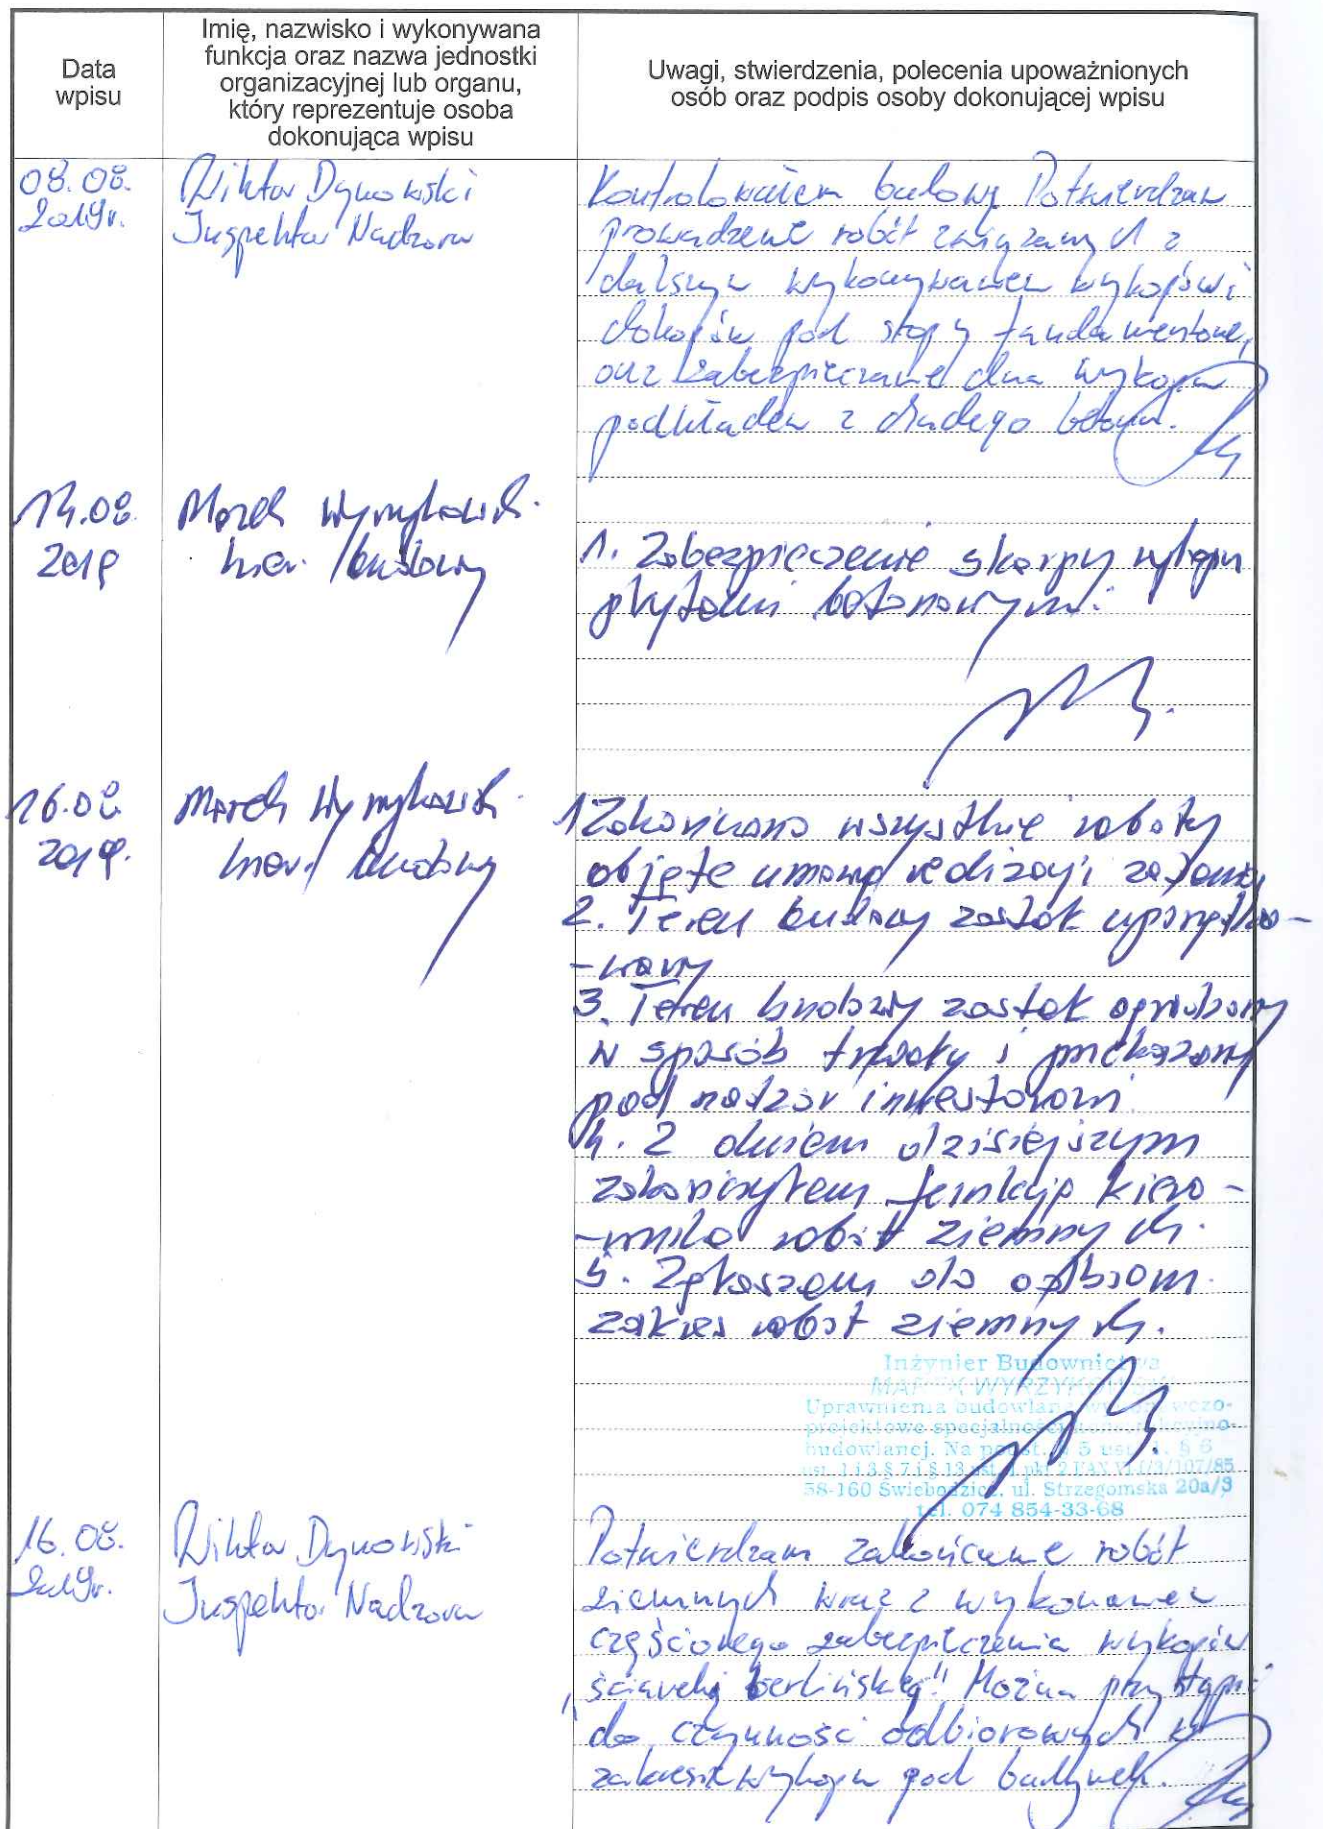 Data
wpisu
Imię, nazwisko i wykonywana
funkcja oraz nazwa jednostki
organizacyjnej lub organu,
który reprezentuje osoba
dokonująca wpisu
Uwagi, stwierdzenia, polecenia upoważnionych
osób oraz podpis osoby dokonującej wpisu
08.08.
2019r.
Wiktor Dynowski
Inspektor Nadzoru
Kontrolowałem budowę Potwierdzam
prowadzenie robót związanych z
dalszym wykonywaniem wykopów i
dokopów pod stopy fundamentowe,
oraz zabezpieczenie dna wykopu
podkładem z chudego betonu.
14.08.
2019
Marek Wyrzykowski
kier. budowy
1. Zabezpieczenie skarpy wykopu
płytami betonowymi.
16.08.
2019.
Marek Wyrzykowski
kier. budowy
1 Zakończono wszystkie roboty
objęte umową realizacji zadania
2. Teren budowy został uporządko-
-wany
3. Teren budowy został ogrodzony
w sposób trwały i przekazany
pod nadzór inwestorowi
4. Z dniem dzisiejszym
zakończyłem funkcję kiero-
-wnika robót ziemnych.
5. Zgłaszam do odbioru
zakres robót ziemnych.
Inżynier Budownictwa
MAREK WYRZYKOWSKI
Uprawnienia budowlane wykonawczo-
projektowe specjalności konstrukcyjno-
budowlanej. Na podst. § 5 ust. 1, § 6
ust. 1 i 3 § 7 i § 13 ust. 1 pkt 2
58-160 Świebodzice, ul. Strzegomska 20a/3
tel. 074 854-33-68
16.08.
2019r.
Wiktor Dynowski
Inspektor Nadzoru
Potwierdzam zakończenie robót
ziemnych wraz z wykonaniem
częściowego zabezpieczenia wykopów
„ścianką berlińską". Można przystąpić
do czynności odbiorowych w
zakresie wykopu pod budynek.